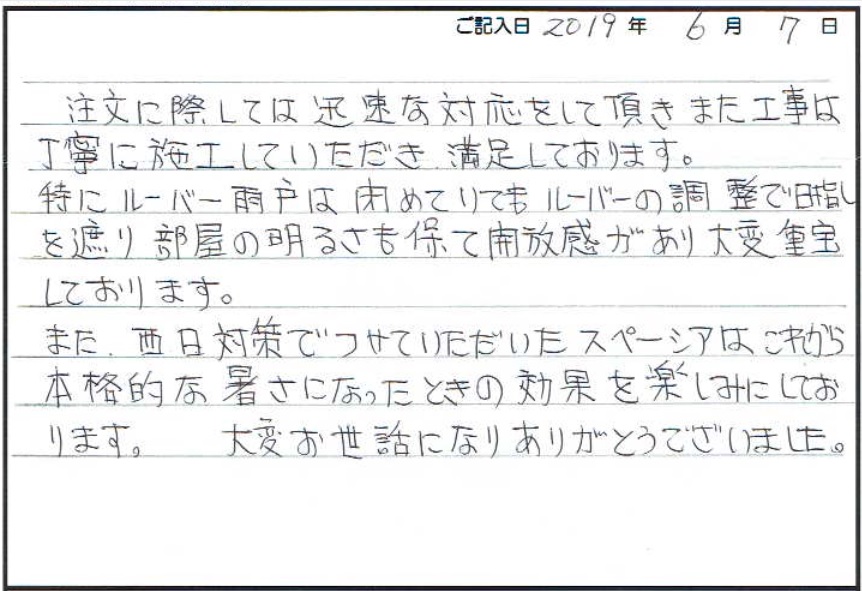 ご記入日 2019 年 6 月 7 日
注文に際しては迅速な対応をして頂きまた工事は
丁寧に施工していただき 満足しております。
特にルーバー雨戸は閉めていてもルーバーの調整で目指し
を遮り部屋の明るさも保て開放感があり大変重宝
しております。
また、西日対策でつけていただいたスペーシアはこれから
本格的な暑さになったときの効果を楽しみにしてお
ります。 大変お世話になりありがとうございました。